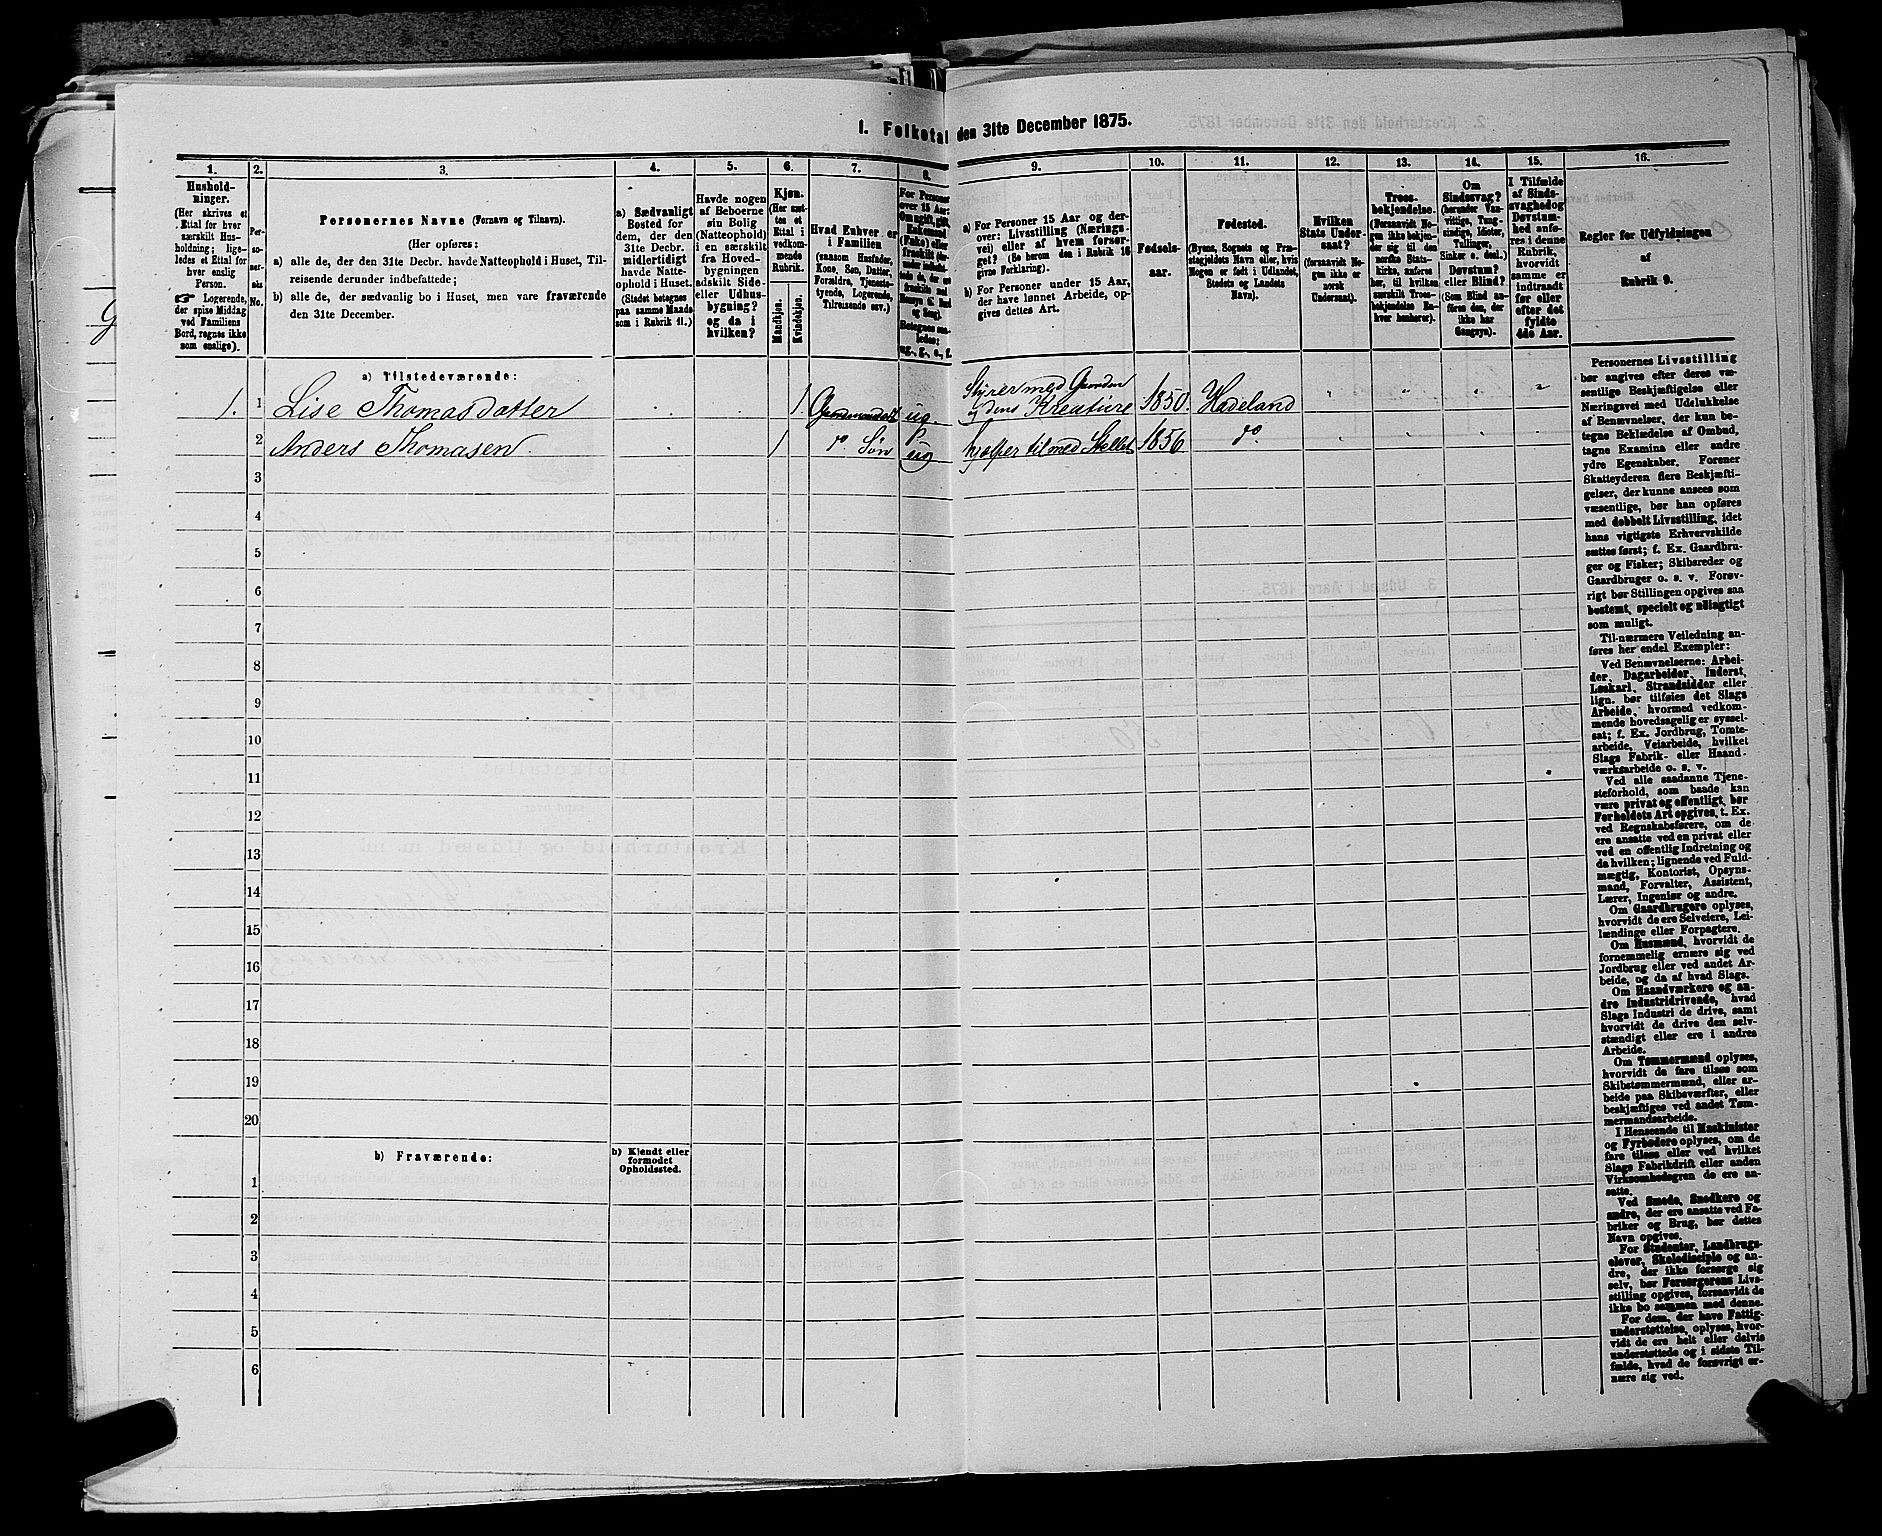 1. Folketal den 31te December 1875.
1. 2. 3. 4. 5. 6. 7. 8. 9. 10. 11. 12. 13. 14. 15. 16.
Hushold-
ninger.
(Her skrives et
Ettal for hver
særskilt Hus-
holdning; lige-
ledes et Ettal for
hver enslig
Person.
Logerende,
der spise Middag
ved Familiens
Bord, regnes ikke
som enslige).
Per-
so-
ner-
nes
No.
Personernes Navne (Fornavn og Tilnavn).
(Her opføres:
a) alle de, der den 31te Decbr. havde Natteophold i Huset, Til-
reisende derunder indbefattede;
b) alle de, der sædvanlig bo i Huset, men vare fraværende
den 31te December.
a) Sædvanligt
Bosted for
dem, der den
31te Decbr.
midlertidigt
havde Natte-
ophold i Huset.
(Stedet betegnes
paa samme Maade
som i Rubrik 11.)
Havde nogen
af Beboerne
sin Bolig
(Natteophold)
i en særskilt
fra Hoved-
bygningen
adskilt Side-
eller Udhus-
bygning?
og da i
hvilken?
Kjøn.
(Her sæt-
tes et
Ettal i
vedkom-
mende
Rubrik.
Mandkjøn.
Kvindekjøn.
Hvad Enhver er
i Familien
(saasom Husfader,
Kone, Søn, Datter,
Forældre, Tjeneste-
tyende, Logerende,
Tilreisende osv.)
For Personer
over 15 Aar:
Om ugift, gift,
Enkemand
(Enke) eller
fraskilt
Betegnes saa-
ledes:
ug., g., e., f.
a) For Personer 15 Aar og der-
over: Livsstilling (Nærings-
vei) eller af hvem forsør-
get? (Se herom den i Rubrik 16
givne Forklaring).
b) For Personer under 15 Aar,
der have lønnet Arbeide, op-
gives dettes Art.
Fødsels-
aar.
Fødested.
(Byens, Sognets og Præ-
stegjeldets Navn eller, hvis
Nogen er født i Udlandet,
Stedets og Landets
Navn).
Hvilken
Stats Under-
saat?
(forsaavidt No-
gen ikke er
norsk
Undersaat).
Troes-
bekjendelse.
(Forsaavidt No-
gen ikke bekjen-
der sig til den
norske Stats-
kirke, anføres
her, til hvilken
særskilt Troes-
bekjendelse En-
hver henhører).
Om
Sindssvag?
(herunder Van-
vittige, Tung-
sindige, Idioter,
Tullinger,
Sinker o. desl.)
Døvstum?
eller Blind?
(Som Blind an-
føres den, der
ikke har
Gangsyn).
I Tilfælde
af Sinds-
svaghed og
Døvstum-
hed anfø-
res i denne
Rubrik,
hvorvidt
samme er
indtraadt
før eller
efter det
fyldte
4de Aar.
Regler for Udfyldningen
af
Rubrik 9.
a) Tilstedeværende:
1. 1 Lise Thomasdatter 1 ug. Styrer med Gaarden 1850. Hadeland
og dens Kreature
2 Anders Thomasen. 1 do. Søn ug hjælper til med Stellet 1856 do.
3
4
5
6
7
8
9
10
11
12
13
14
15
16
17
18
19
20
b) Fraværende:
b) Kjendt eller
formodet
Opholdssted.
1
2
3
4
5
6
Personernes Livsstilling
bør angives efter deres væ-
sentlige Beskjæftigelse eller
Næringsvei med Udelukkelse
af Benævnelser, der kun be-
tegne Beklædelse af Ombud,
tagne Examina eller andre
ydre Egenskaber. Forener
Skatteyderen flere Beskjæfti-
gelser, der kunne ansees som
væsentlige, bør han opføres
med dobbelt Livsstilling, idet
hans vigtigste Erhvervskilde
sættes først; f. Ex. Gaardbru-
ger og Fisker; Skibsreder og
Gaardbruger o. s. v. Forøv-
rigt bør Stillingen opgives saa
bestemt, specielt og nøiagtigt
som muligt.
Til nærmere Veiledning an-
føres her endel Exempler:
Ved Benævnelserne: Arbei-
der, Dagarbeider, Inderst,
Løskarl, Strandsidder eller
lign. bør tilføies det Slags
Arbeide, hvormed vedkom-
mende hovedsagelig er syssel-
sat; f. Ex. Jordbrug, Tomte-
arbeide, Veiarbeide, hvilket
Slags Fabrik- eller Haand-
værksarbeide o. s. v.
Ved alle saadanne Tjene-
steforhold, som baade kan
være privat og offentligt, bør
Forholdets Art opgives, f. Ex.
ved Regnskabsførere, om de
ere ansatte ved en privat eller
ved en offentlig Indretning og
da hvilken; lignende ved Fuld-
mægtig, Kontorist, Opsyns-
mand, Forvalter, Assistent,
Lærer, Ingeniør og andre.
Om Gaardbrugere oplyses,
hvorvidt de ere Selveiere, Lei-
lændinge eller Forpagtere.
Om Husmænd, hvorvidt de
fornemmelig ernære sig ved
Jordbrug eller ved andet Ar-
beide, og da af hvad Slags.
Om Haandværkere og an-
dre Industridrivende, hvad
Slags Industri de drive, samt
hvorvidt de drive den selv-
stændigt eller ere i andres
Arbeide.
Om Tømmermænd oplyses,
hvorvidt de fare tilsøs som
Skibstømmermænd, eller ar-
beide paa Skibsværfter, eller
beskjæftiges ved andet Tøm-
mermandsarbeide.
I Henseende til Maskinister
og Fyrbødere oplyses, om de
fare tilsøs eller ved hvilket
Slags Fabrikdrift eller anden
Virksomhedsgren de ere an-
satte.
Ved Smede, Snedkere og
andre, der ere ansatte ved Fa-
briker og Brug, bør dettes
Navn opgives.
For Studenter, Landbrugs-
elever, Skoledisciple og an-
dre, der ikke forsørge sig
selv, bør Forsørgerens Livs-
stilling opgives, forsaavidt de
ikke bo sammen med denne.
For dem, der have Fattig-
understøttelse, oplyses, hvor-
vidt de ere helt eller delvis
understøttede og i sidste Til-
fælde, hvad de forøvrigt er-
nære sig ved.